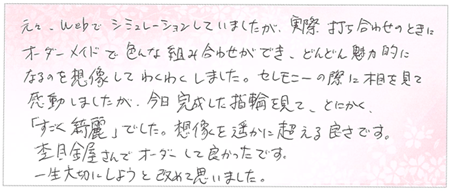 元々、Webでシミュレーションしていましたが、実際打ち合わせのときに
オーダーメイドで色んな組み合わせができ、どんどん魅力的に
なるのを想像してわくわくしました。セレモニーの際に木目を見て
感動しましたが、今日完成した指輪を見て、とにかく、
「すごく綺麗」でした。想像を遥かに超える良さです。
杢目金屋さんでオーダーして良かったです。
一生大切にしようと改めて思いました。